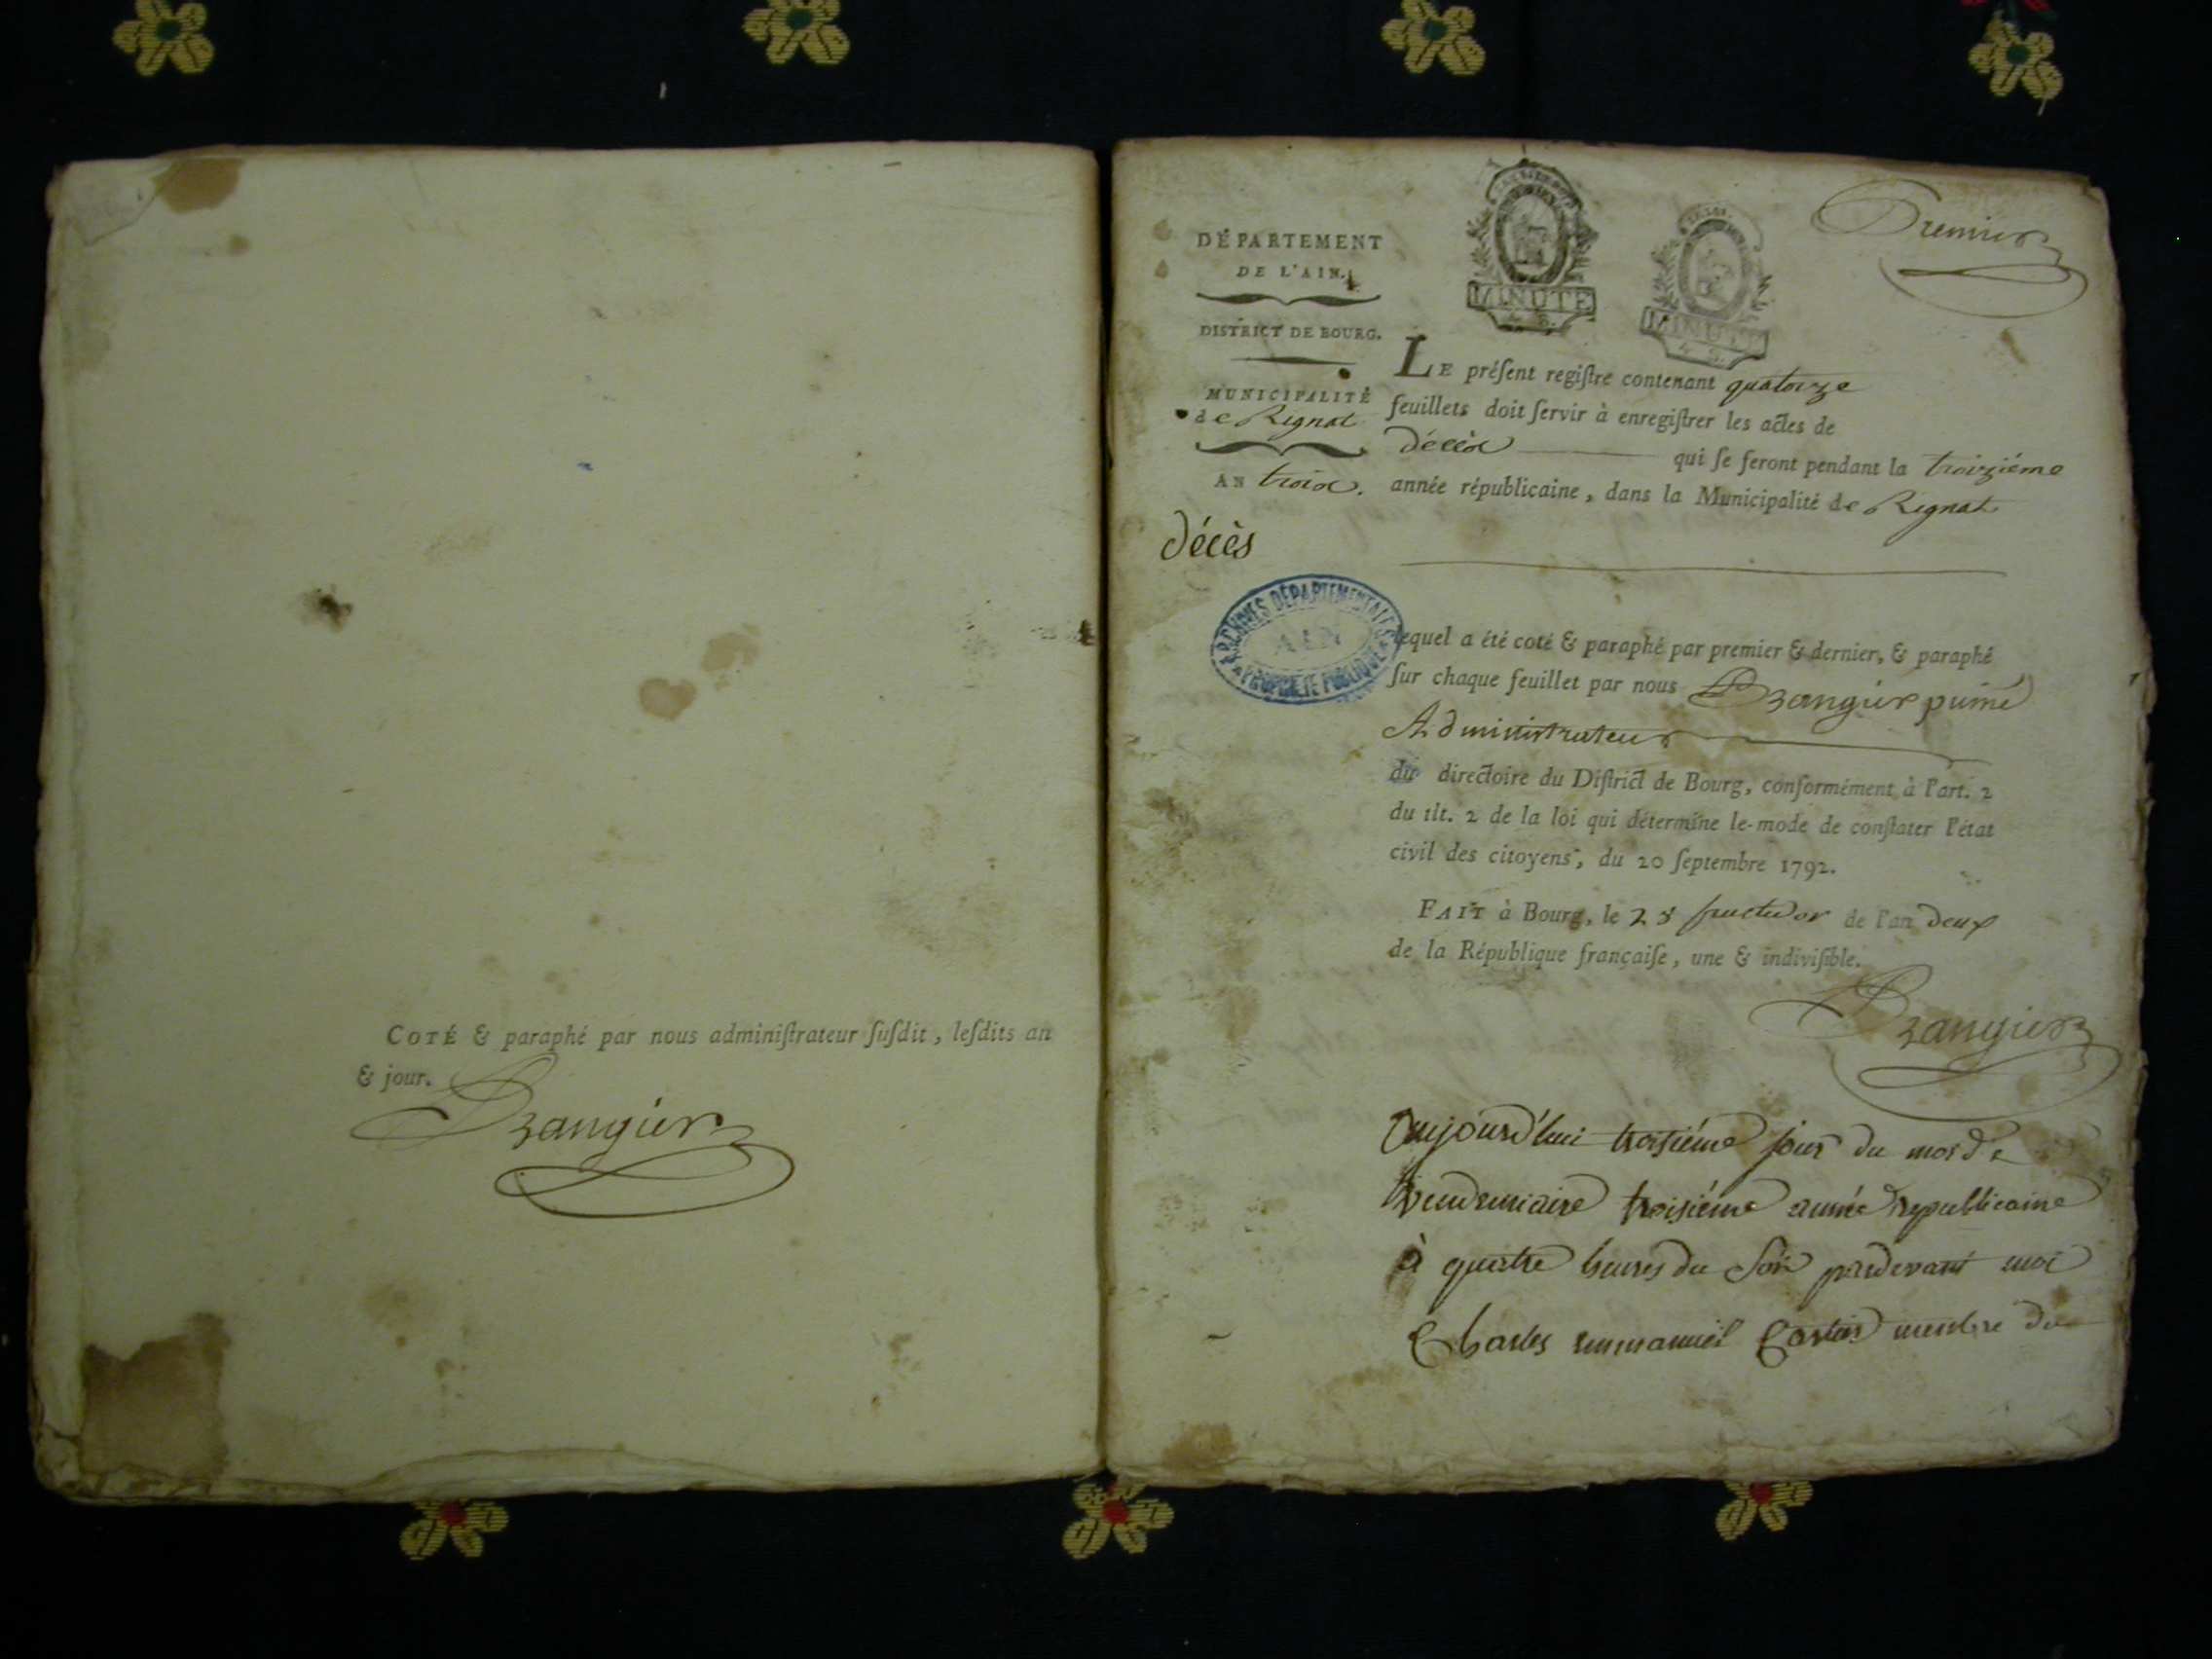 COTÉ & paraphé par nous adminiſtrateur ſuſdit, leſdits an
& jour.
Brangier
Premier
MINUTE
MINUTE
DÉPARTEMENT
DE L'AIN.
DISTRICT DE BOURG.
MUNICIPALITÉ
de Rignat
AN trois.
décès
LE préſent regiſtre contenant quatorze
feuillets doit ſervir à enregiſtrer les actes de
décès qui ſe feront pendant la troizième
année républicaine, dans la Municipalité de Rignat
ARCHIVES DÉPARTEMENTALES
AIN
PROPRIÉTÉ PUBLIQUE
lequel a été coté & paraphé par premier & dernier, & paraphé
ſur chaque feuillet par nous Brangier puiné
Administrateur
du directoire du Diſtrict de Bourg, conformément à l'art. 2
du tit. 2 de la loi qui détermine le mode de conſtater l'état
civil des citoyens, du 20 ſeptembre 1792.
FAIT à Bourg, le 25 fructidor de l'an deux
de la République françaiſe, une & indiviſible.
Brangier
aujourd'hui troisiéme jour du mois de
vendemiaire troisiéme année republicaine
à quatre heures du soir pardevant moi
Charles emmanuel membre du